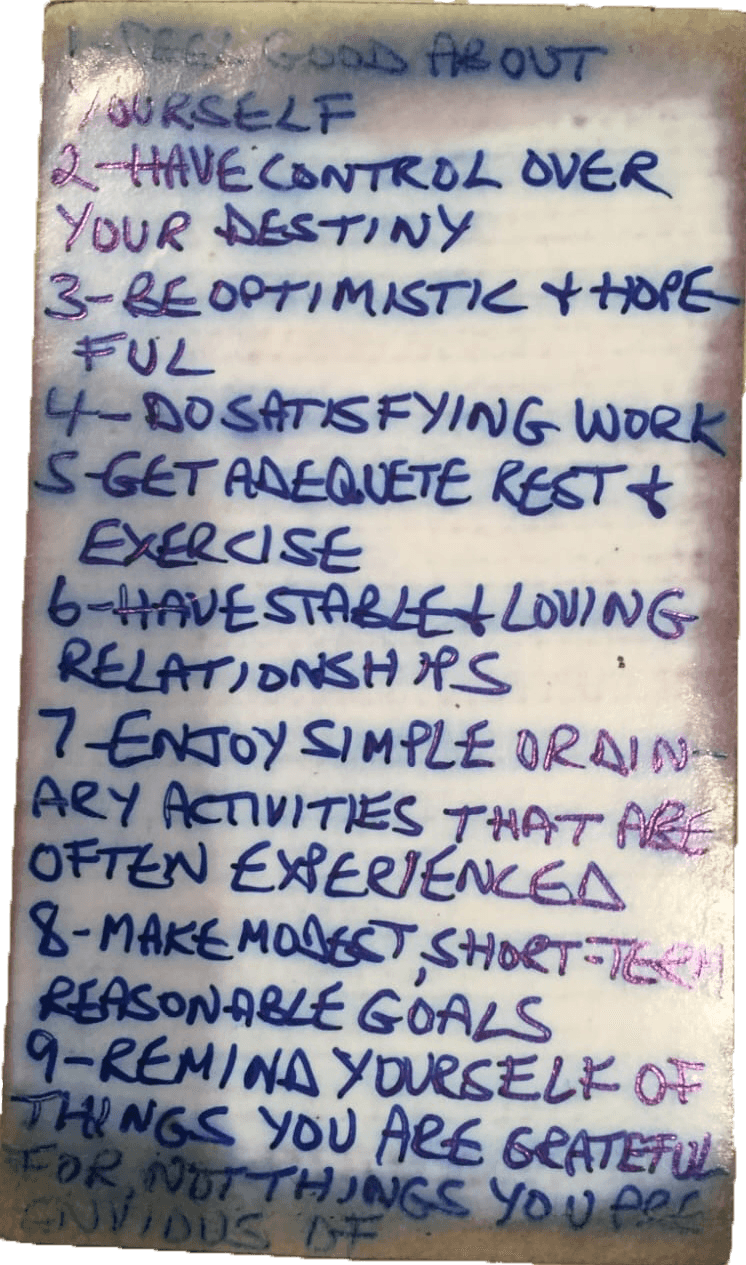 1-FEEL GOOD ABOUT
YOURSELF
2-HAVE CONTROL OVER
YOUR DESTINY
3-BE OPTIMISTIC & HOPE-
FUL
4-DO SATISFYING WORK
5-GET ADEQUETE REST &
EXERCISE
6-HAVE STABLE & LOVING
RELATIONSHIPS
7-ENJOY SIMPLE ORDIN-
ARY ACTIVITIES THAT ARE
OFTEN EXPERIENCED
8-MAKE MODEST, SHORT-TERM
REASONABLE GOALS
9-REMIND YOURSELF OF
THINGS YOU ARE GRATEFUL
FOR, NOT THINGS YOU ARE
ENVIOUS OF